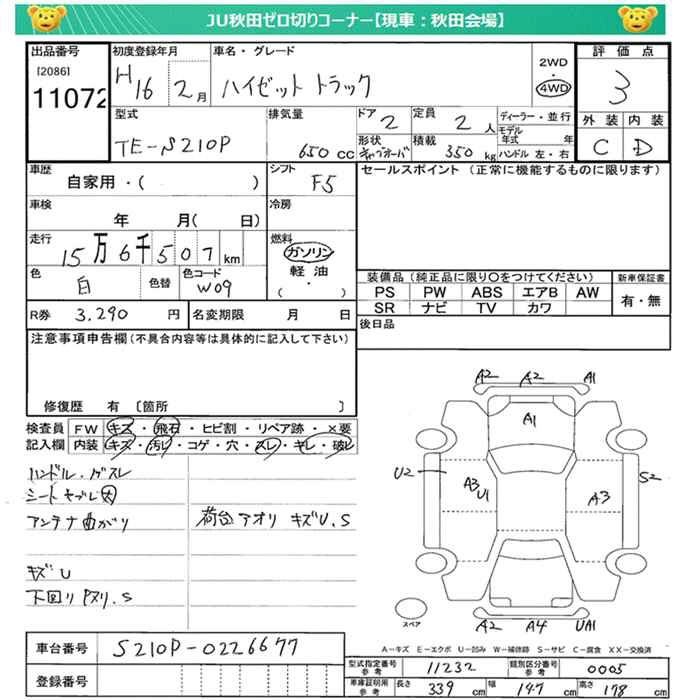 JU秋田ゼロ切りコーナー【現車：秋田会場】
出品番号 初度登録年月 車名・グレード 評価点
[2086]
11072 H16 2月 ハイゼット トラック 2WD・4WD 3
型式 排気量 ドア 定員 ディーラー・並行 外装 内装
TE-S210P 650cc 2 2人 モデル年式 年 C D
形状 積載 ハンドル 左・右
キャブオーバ 350kg
車歴 シフト セールスポイント（正常に機能するものに限ります）
自家用・( ) F5
車検 冷房
年 月( 日)
走行 燃料
15万6千507km ガソリン
軽油
・( )
色 色替 色コード
白 W09
装備品（純正品に限り○をつけてください） 新車保証書
PS PW ABS エアB AW 有・無
SR ナビ TV カワ
R券 3,290円 名変期限 月 日
後日品
注意事項申告欄(不具合内容等は具体的に記入して下さい)
修復歴 有 〔箇所 〕
検査員 FW キズ・飛石・ヒビ割・リペア跡・×要
記入欄 内装 キズ・汚レ・コゲ・穴・スレ・キレ・破レ
ハンドル、ゲスレ
シートヤブレ大
アンテナ曲がり 荷台アオリ キズU.S
キズU
下回り S
A2 A2 A1
A1
U2 A3 U1 A3 S2
スペア
A2 A4 UA1
A－キズ E－エクボ U－凹み W－補修跡 S－サビ C－腐食 XX－交換済
車台番号 S210P-0226677
登録番号
型式指定番号 参考 11232 類別区分番号 参考 0005
車庫証明用 参考 長さ 339cm 幅 147cm 高さ 178cm